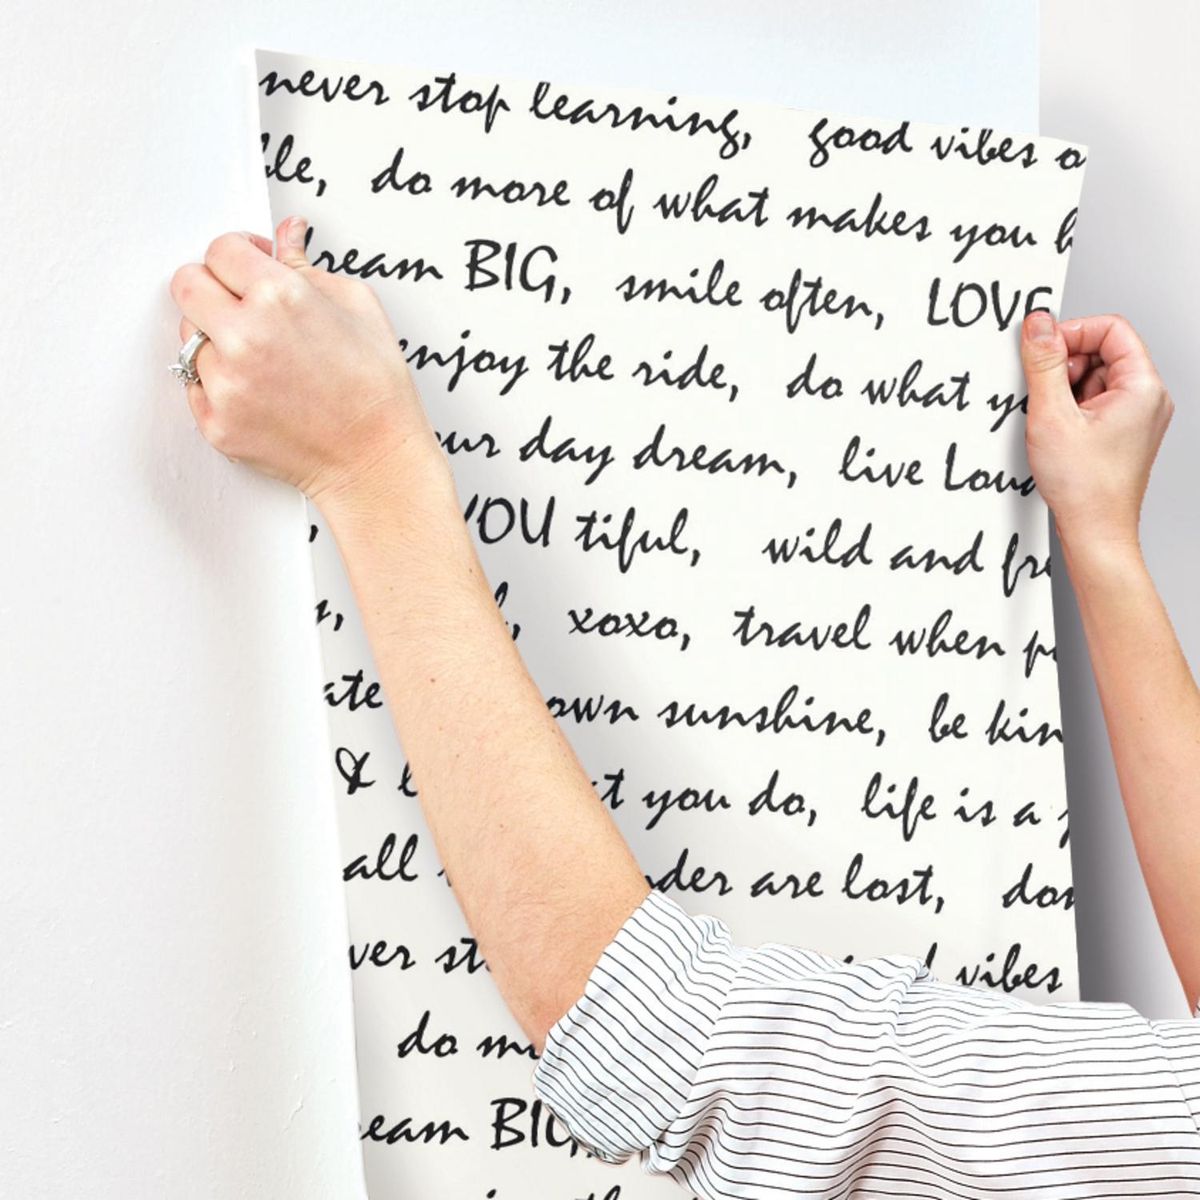 never stop learning, good vibes o
ble, do more of what makes you h
dream BIG, smile often, LOVE
enjoy the ride, do what yo
our day dream, live Loud
, YOU tiful, wild and fre
y, , xoxo, travel when p
ate own sunshine, be kin
& l t you do, life is a
all nder are lost, don
ver st vibes
do mo
eam BIG,